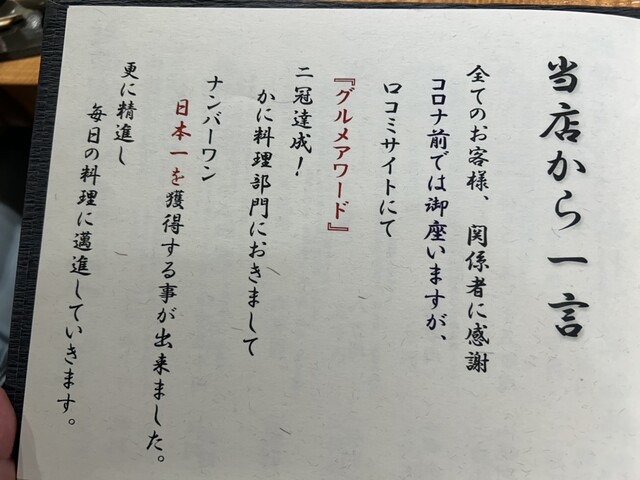 当店から一言
全てのお客様、関係者に感謝
コロナ前では御座いますが、
口コミサイトにて
『グルメアワード』
二冠達成！
かに料理部門におきまして
ナンバーワン
日本一を獲得する事が出来ました。
更に精進し
毎日の料理に邁進していきます。